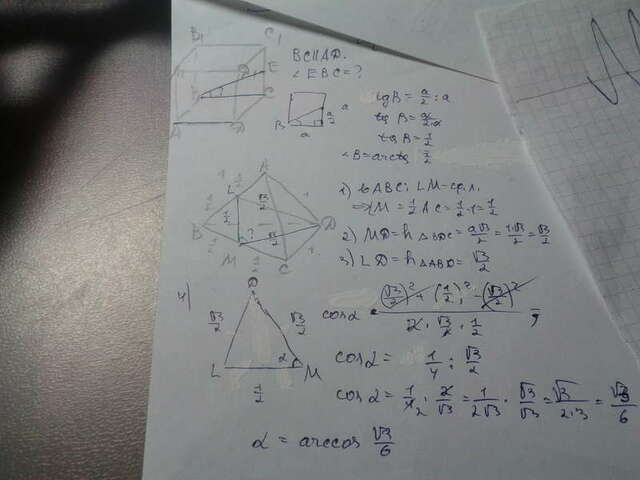 B₁ C₁
E
C
A D
BC∥AD.
∠EBC=?
B a a/2 a
tg B = a/2 : a
tg B = a/2·a
tg B = 1/2
∠B = arctg 1/2
A
L √3/2 1
1/2
B D
M √3/2
C
1) ΔABC; LM=ср.л.
⇒ LM = 1/2 AC = 1/2·1 = 1/2
2) MD = h ΔBDC = a√3/2 = 1·√3/2 = √3/2
3) LD = h ΔABD = √3/2
4)
D
√3/2 √3/2
L α M
1/2
cos α = ((√3/2)² + (1/2)² - (√3/2)²) / (2·√3/2·1/2) =
cos α = 1/4 : √3/2
cos α = 1/4 · 2/√3 = 1/2√3 · √3/√3 = √3/2·3 = √3/6
α = arccos √3/6